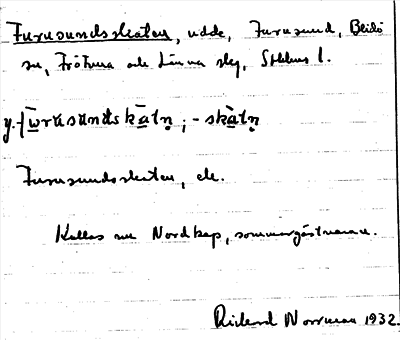 Furusundsskaten, udde, Furusund, Blidö
sn, Frötuna och Länna skg, Sthlms l.
y. fu̅rusundskatn; -skàtn
Furusundsskaten, ek.
Kallas nu Nordkap, sommargästnamn.
Richard Norrman 1932.